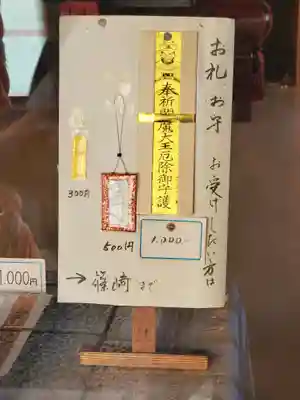 お札 お守 お受けしたい方は
奉祈閻魔大王厄除御守護
300円
500円
1.000.-
→ 篠崎まで
1.000円